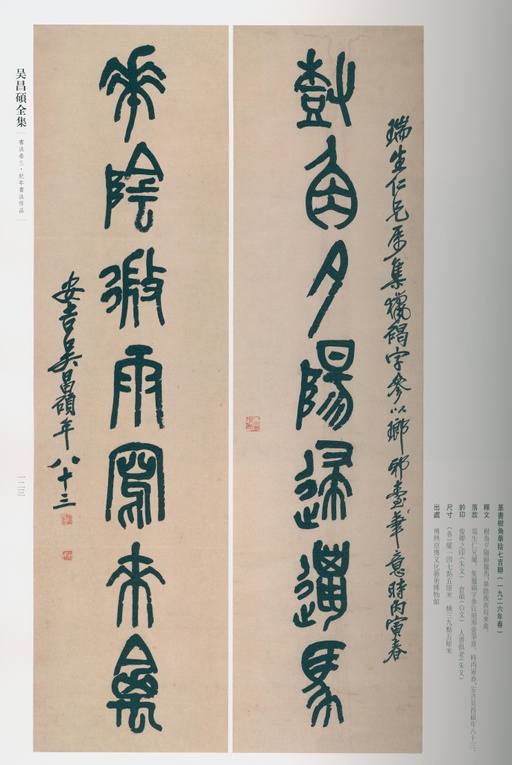 瑞生仁兄屬集獵碣字參以瑯邪臺筆意時丙寅春
夕陽歸馬
華陰微雨寫來禽
安吉吴昌碩年八十三
篆書樹角華陰七言聯(一九二六年春)
釋文 樹角夕陽歸馬,華陰微雨寫來禽。
落款 瑞生仁兄屬,集獵碣字參以瑯邪臺筆意。時丙寅春,安吉吴昌碩年八十三。
鈐印 俊卿之印(朱文) 倉碩(白文) 人書俱老(朱文)
尺寸 (各)縱一四七點五厘米 橫三九點五厘米
出處 文化藝術博物館
吴昌碩全集
書法卷三·紀年書法作品
一二三